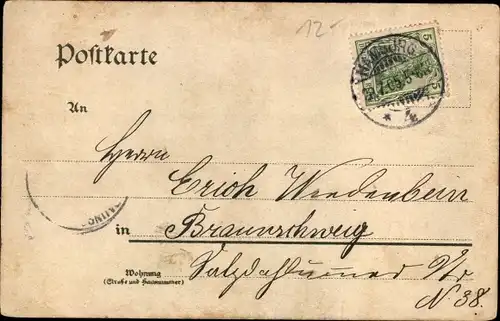 12.-
Postkarte
5
HAMBURG
An
Herrn
Erich Wendenbein
in Braunschweig
Wohnung
(Straße und Hausnummer)
Salzdahlumer Str.
N. 38.